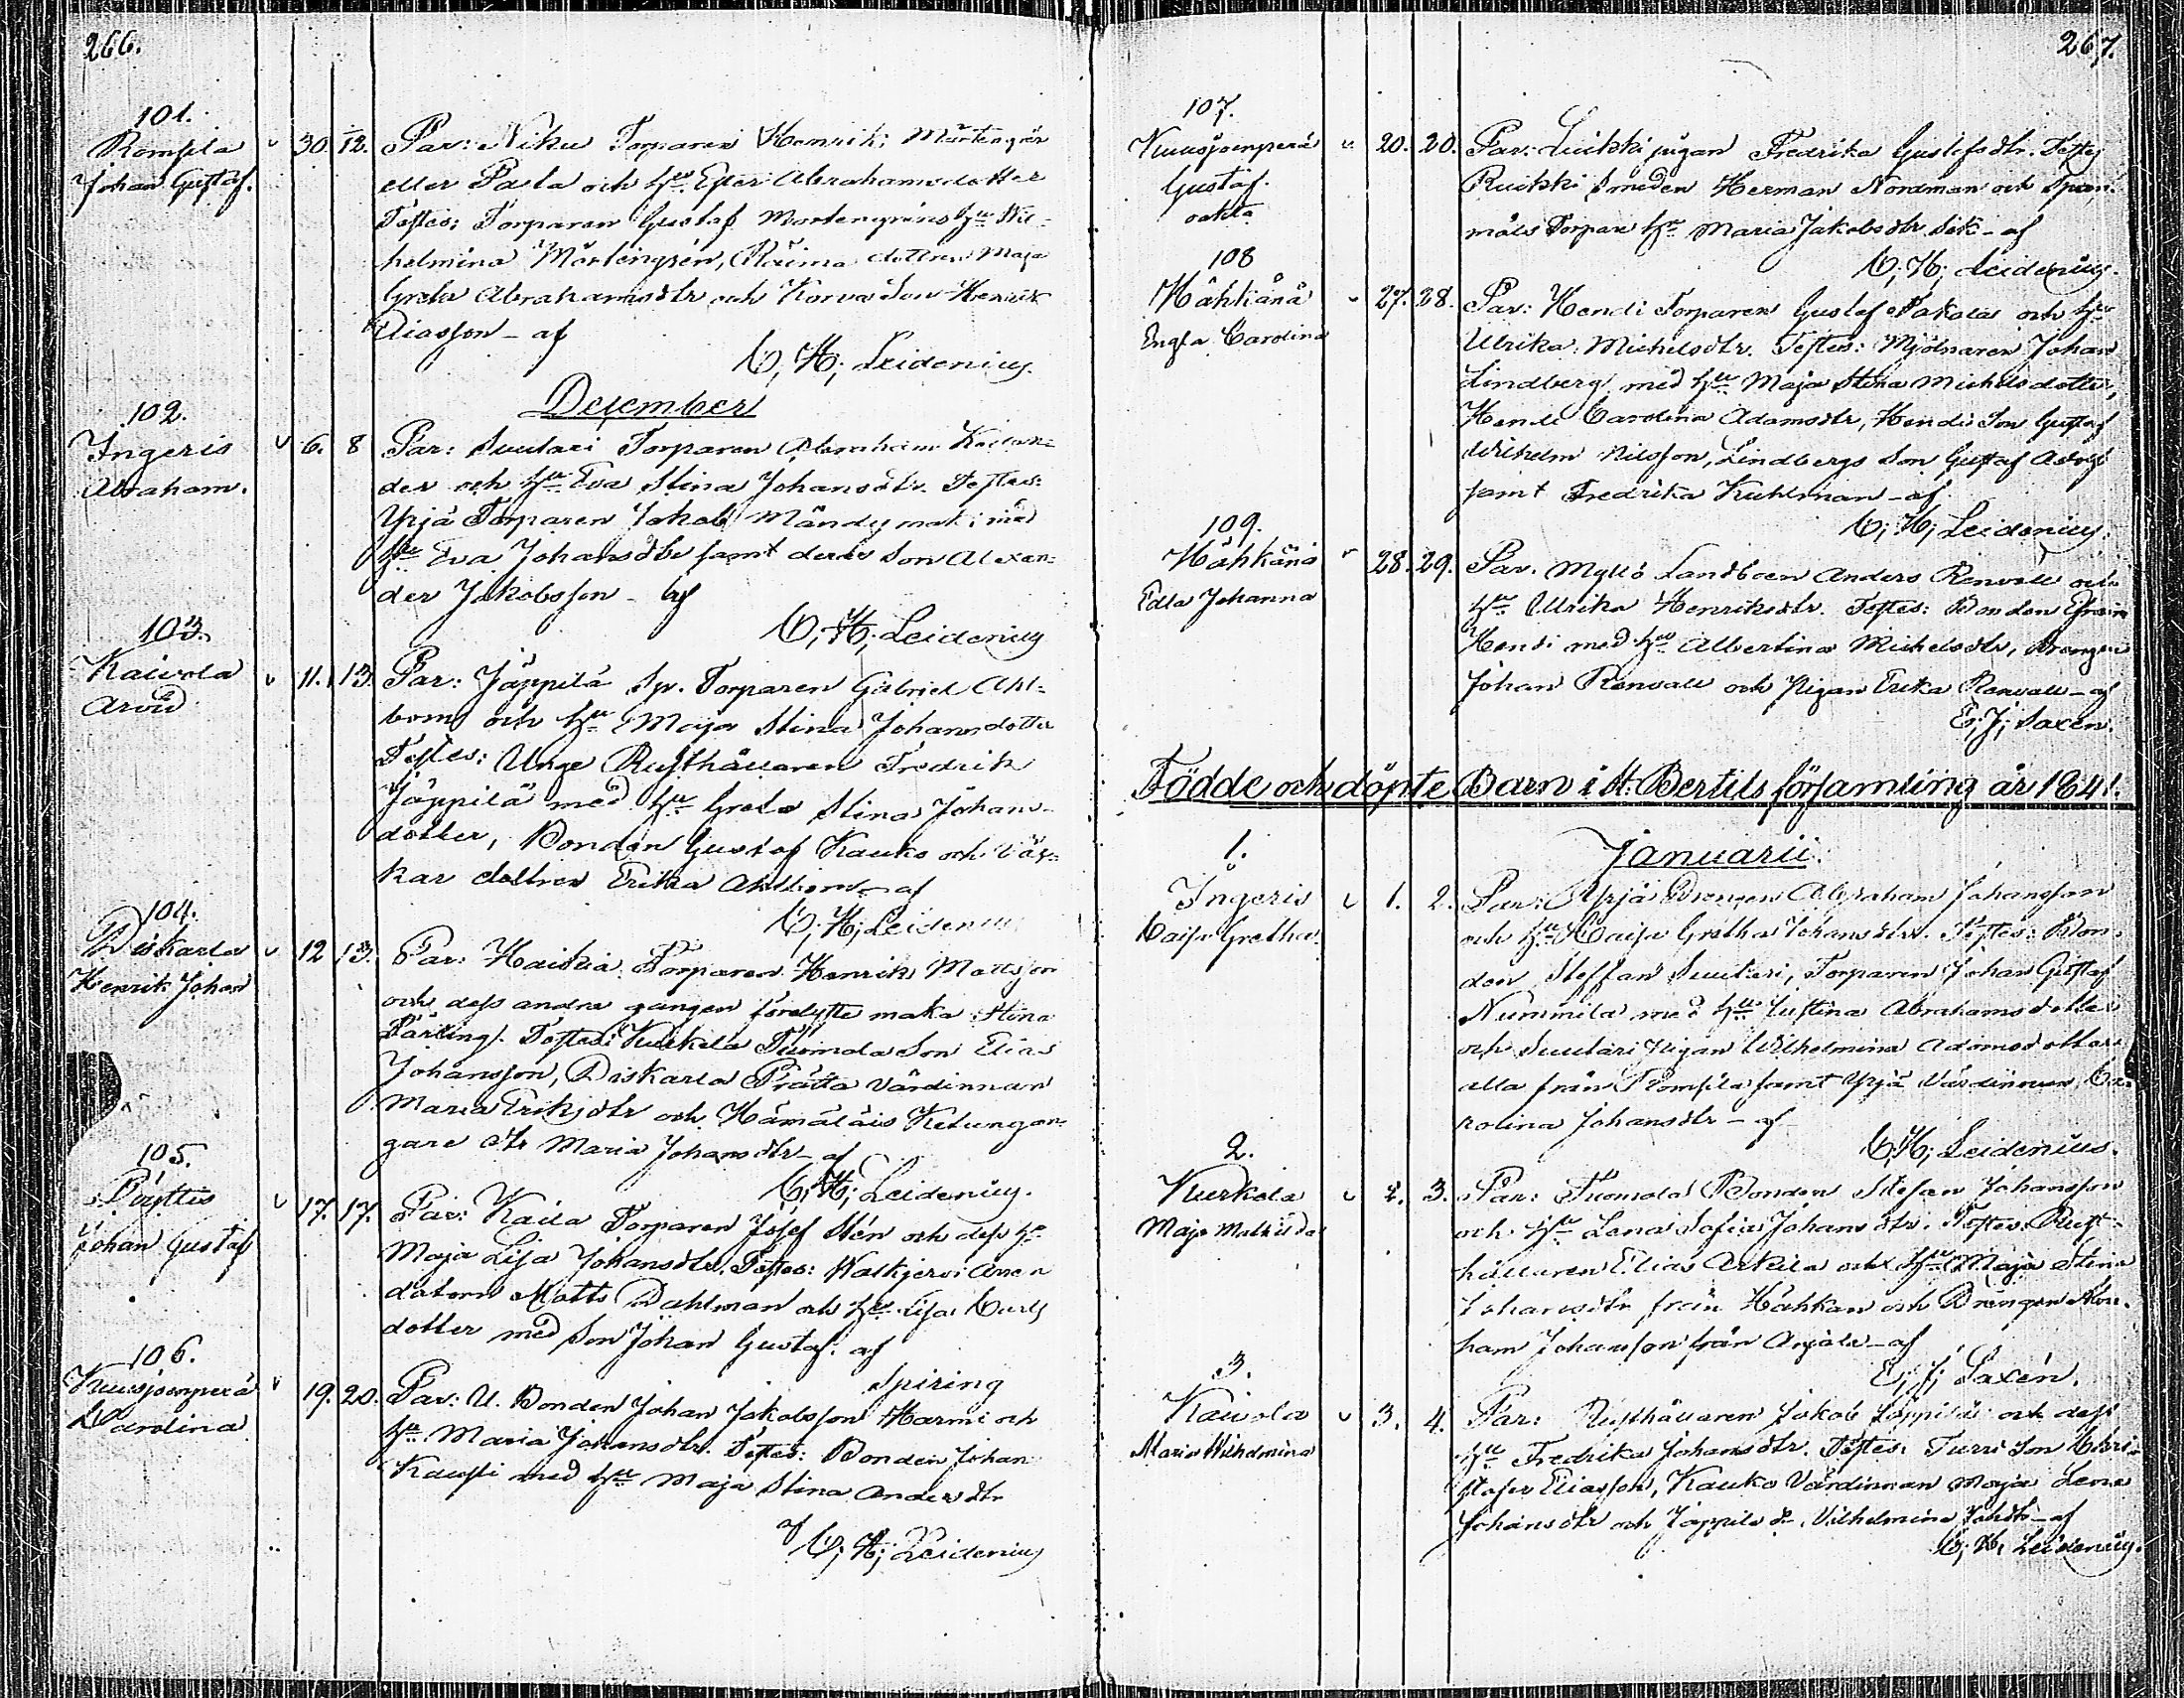 266.
101.
Rompila v 30. 12. Par: Niku Torparen Henrik Mårtengrén
Johan Gustaf. eller Pala och hu Ester Abrahamsdotter
Testes: Torparen Gustaf Mårtengrens hu Wil-
helmina Mårtengrén, dottren Maja
Greta Abrahamsdtr och Korva Son Henrik
Eliasson - af
C; H; Leidenius.
December
102.
Ingeris v 6. 8 Par: Suutari Torparen Abraham
Abraham. der och hu Eva Stina Johansdtr. Testes:
Yrjä Torparen Jakob Mändymäki med
hu Eva Johansdtr samt deras Son Alexan-
der Jakobsson - af
C; H; Leidenius
103.
Kaivola v 11. 13. Par: Jäppilä Sp. Torparen Gabriel Ahl-
Arvid bom och hu Maja Stina Johansdotter
Testes: Unge Rusthållaren Fredrik
Jäppilä med hu Greta Stina Johans-
dotter, Bonden Gustaf Kauko och
kar dottren Erika Ahlbom - af
C; H; Leidenius
104.
Diskarla v 12 13. Par: Haiskia Torparen Henrik Mattsson
Henrik Johan och dess andra gången förelyste maka Stina
Färling. Testes: Kurkela Tuomola Son Elias
Johansson, Diskarla Prätta Värdinnan
Maria Eriksdtr och Hämäläis
gare dtr Maria Johansdtr - af
C; H; Leidenius.
105.
Pöyttis v 17. 17. Par: Kaila Torparen Josef Stén och dess hu
Johan Gustaf Maja Lisa Johansdtr. Testes: Walkjervi Aren
datorn Matts Dahlman och hu Lisa Carls
dotter med Son Johan Gustaf. af
Spiring
106.
Kuusjoenperä v 19. 20. Par: U. Bonden Johan Jakobsson Harmi och
Carolina hu Maria Johansdtr. Testes: Bonden Johan
Kauppi med hu Maja Stina Andersdtr
af C; H; Leidenius
267.
107.
Kuusjoenperä v 20. 20. Par: Luikki pigan Fredrika Gustafsdtr. Testes
Gustaf. Ruikki Smeden Herman Nordman och
oäkta måls Torpare hu Maria Jakobsdtr - af
C; H; Leidenius.
108
Hähkänä v 27. 28. Par: Hendi Torparen Gustaf Jakola och hu
Engla Carolina Ulrika Michelsdtr. Testes: Mjölnaren Johan
Lindberg med hu Maja Stina Michelsdotter,
Hendi Carolina Adamsdtr, Hendi Son Gustaf
Wilhelm Nilsson, Lindbergs Son Gustaf Adolf
samt Fredrika Kuhlman - af
C; H; Leidenius.
109.
Hähkänä v 28. 29. Par. Myllö Landboen Anders Renvall och
Edla Johanna hu Ulrika Henriksdtr. Testes: Bonden Efraim
Hendi med hu Albertina Michelsdtr, Drengen
Johan Renvall och Pigan Erika Renvall - af
E; J; Saxén.
Födde och döpte Barn i St: Bertils församling år 1864.
Januarii.
1.
Ingeris v 1. 2. Par: Yrjä Drengen Abraham Johansson
Caisa Gretha. och hu Caisa Gretha Johansdtr. Testes: Bon-
den Steffan Suutari, Torparen Johan Gustaf
Nummila med hu Justina Abrahamsdotter
och Suutari Pigan Wilhelmina Adamsdotter
alla från Rompila samt Yrjä Värdinnan Ca-
rolina Johansdtr - af
C; H; Leidenius.
2.
Kurkela v 2. 3. Par: Tuomola Bonden Stefan Johansson
Maja Matilda och hu Lena Sofia Johansdtr. Testes: Rust-
hållaren Elias Arkila och hu Maja Stina
Johansdtr från Hähkän och Drengen Abra-
ham Johansson från Anjala - af
E; J; Saxén.
3.
Kaivola v 3. 4. Par: Rusthållaren Jakob Jäppilä och dess
Maria Wilhelmina hu Fredrika Johansdtr. Testes: Turri Son Chri-
stofer Eliasson, Kauko Värdinnan Maja Lena
Johansdtr och Jäppilä dr. Wilhelmina Johdtr - af
C; H; Leidenius.